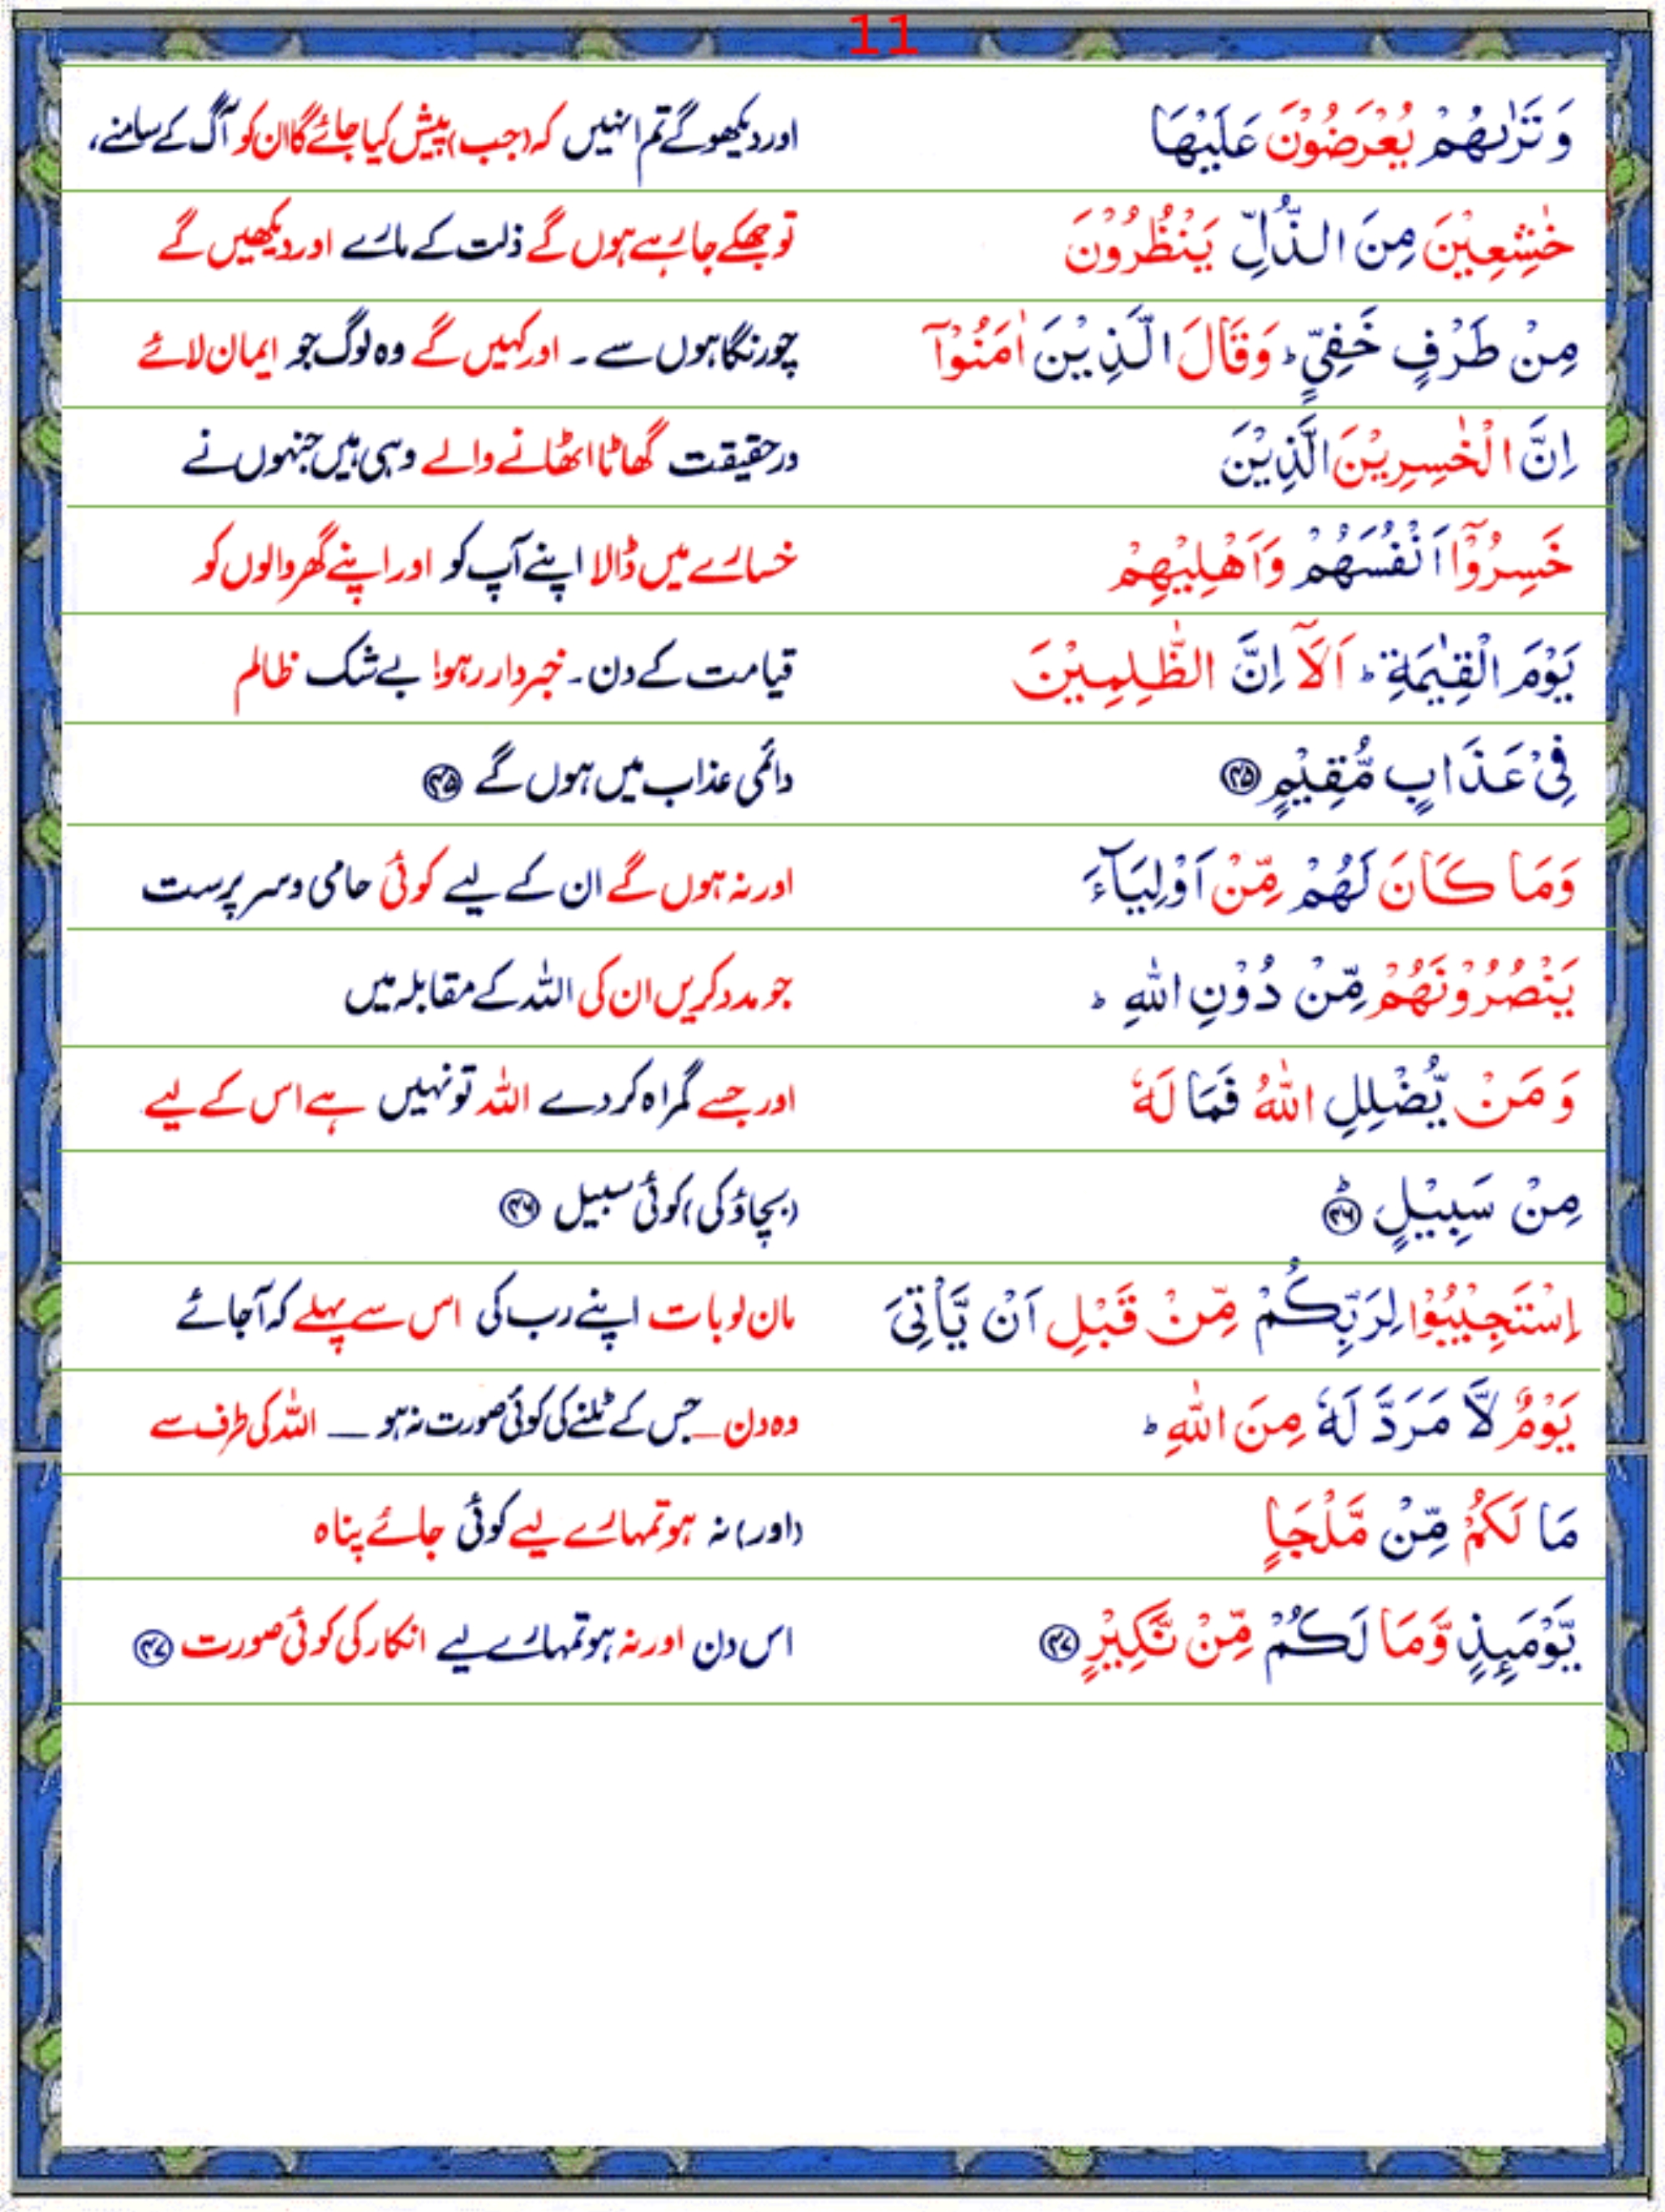 11
وَتَرٰىهُمْ يُعْرَضُوْنَ عَلَيْهَا اور دیکھو گے تم انہیں کہ (جب) پیش کیا جائے گا ان کو آگ کے سامنے،
خٰشِعِيْنَ مِنَ الذُّلِّ يَنْظُرُوْنَ تو جھکے جا رہے ہوں گے ذلت کے مارے اور دیکھیں گے
مِنْ طَرْفٍ خَفِيٍّ ؕ وَقَالَ الَّذِيْنَ اٰمَنُوْۤا چور نگاہوں سے ۔ اور کہیں گے وہ لوگ جو ایمان لائے
اِنَّ الْخٰسِرِيْنَ الَّذِيْنَ درحقیقت گھاٹا اٹھانے والے وہی ہیں جنہوں نے
خَسِرُوْۤا اَنْفُسَهُمْ وَاَهْلِيْهِمْ خسارے میں ڈالا اپنے آپ کو اور اپنے گھر والوں کو
يَوْمَ الْقِيٰمَةِ ؕ اَلَاۤ اِنَّ الظّٰلِمِيْنَ قیامت کے دن ۔ خبردار رہو! بے شک ظالم
فِيْ عَذَابٍ مُّقِيْمٍ ۴۵ دائمی عذاب میں ہوں گے ۴۵
وَمَا كَانَ لَهُمْ مِّنْ اَوْلِيَآءَ اور نہ ہوں گے ان کے لیے کوئی حامی و سرپرست
يَنْصُرُوْنَهُمْ مِّنْ دُوْنِ اللّٰهِ ؕ جو مدد کریں ان کی اللہ کے مقابلہ میں
وَمَنْ يُّضْلِلِ اللّٰهُ فَمَا لَهٗ اور جسے گمراہ کر دے اللہ تو نہیں ہے اس کے لیے
مِنْ سَبِيْلٍ ؕ ۴۶ (بچاؤ کی) کوئی سبیل ۴۶
اِسْتَجِيْبُوْا لِرَبِّكُمْ مِّنْ قَبْلِ اَنْ يَّاْتِيَ مان لو بات اپنے رب کی اس سے پہلے کہ آ جائے
يَوْمٌ لَّا مَرَدَّ لَهٗ مِنَ اللّٰهِ ؕ وہ دن ــ جس کے ٹلنے کی کوئی صورت نہ ہو ــ اللہ کی طرف سے
مَا لَكُمْ مِّنْ مَّلْجَاٍ (اور) نہ ہو تمہارے لیے کوئی جائے پناہ
يَّوْمَىِٕذٍ وَّمَا لَكُمْ مِّنْ نَّكِيْرٍ ۴۷ اس دن اور نہ ہو تمہارے لیے انکار کی کوئی صورت ۴۷